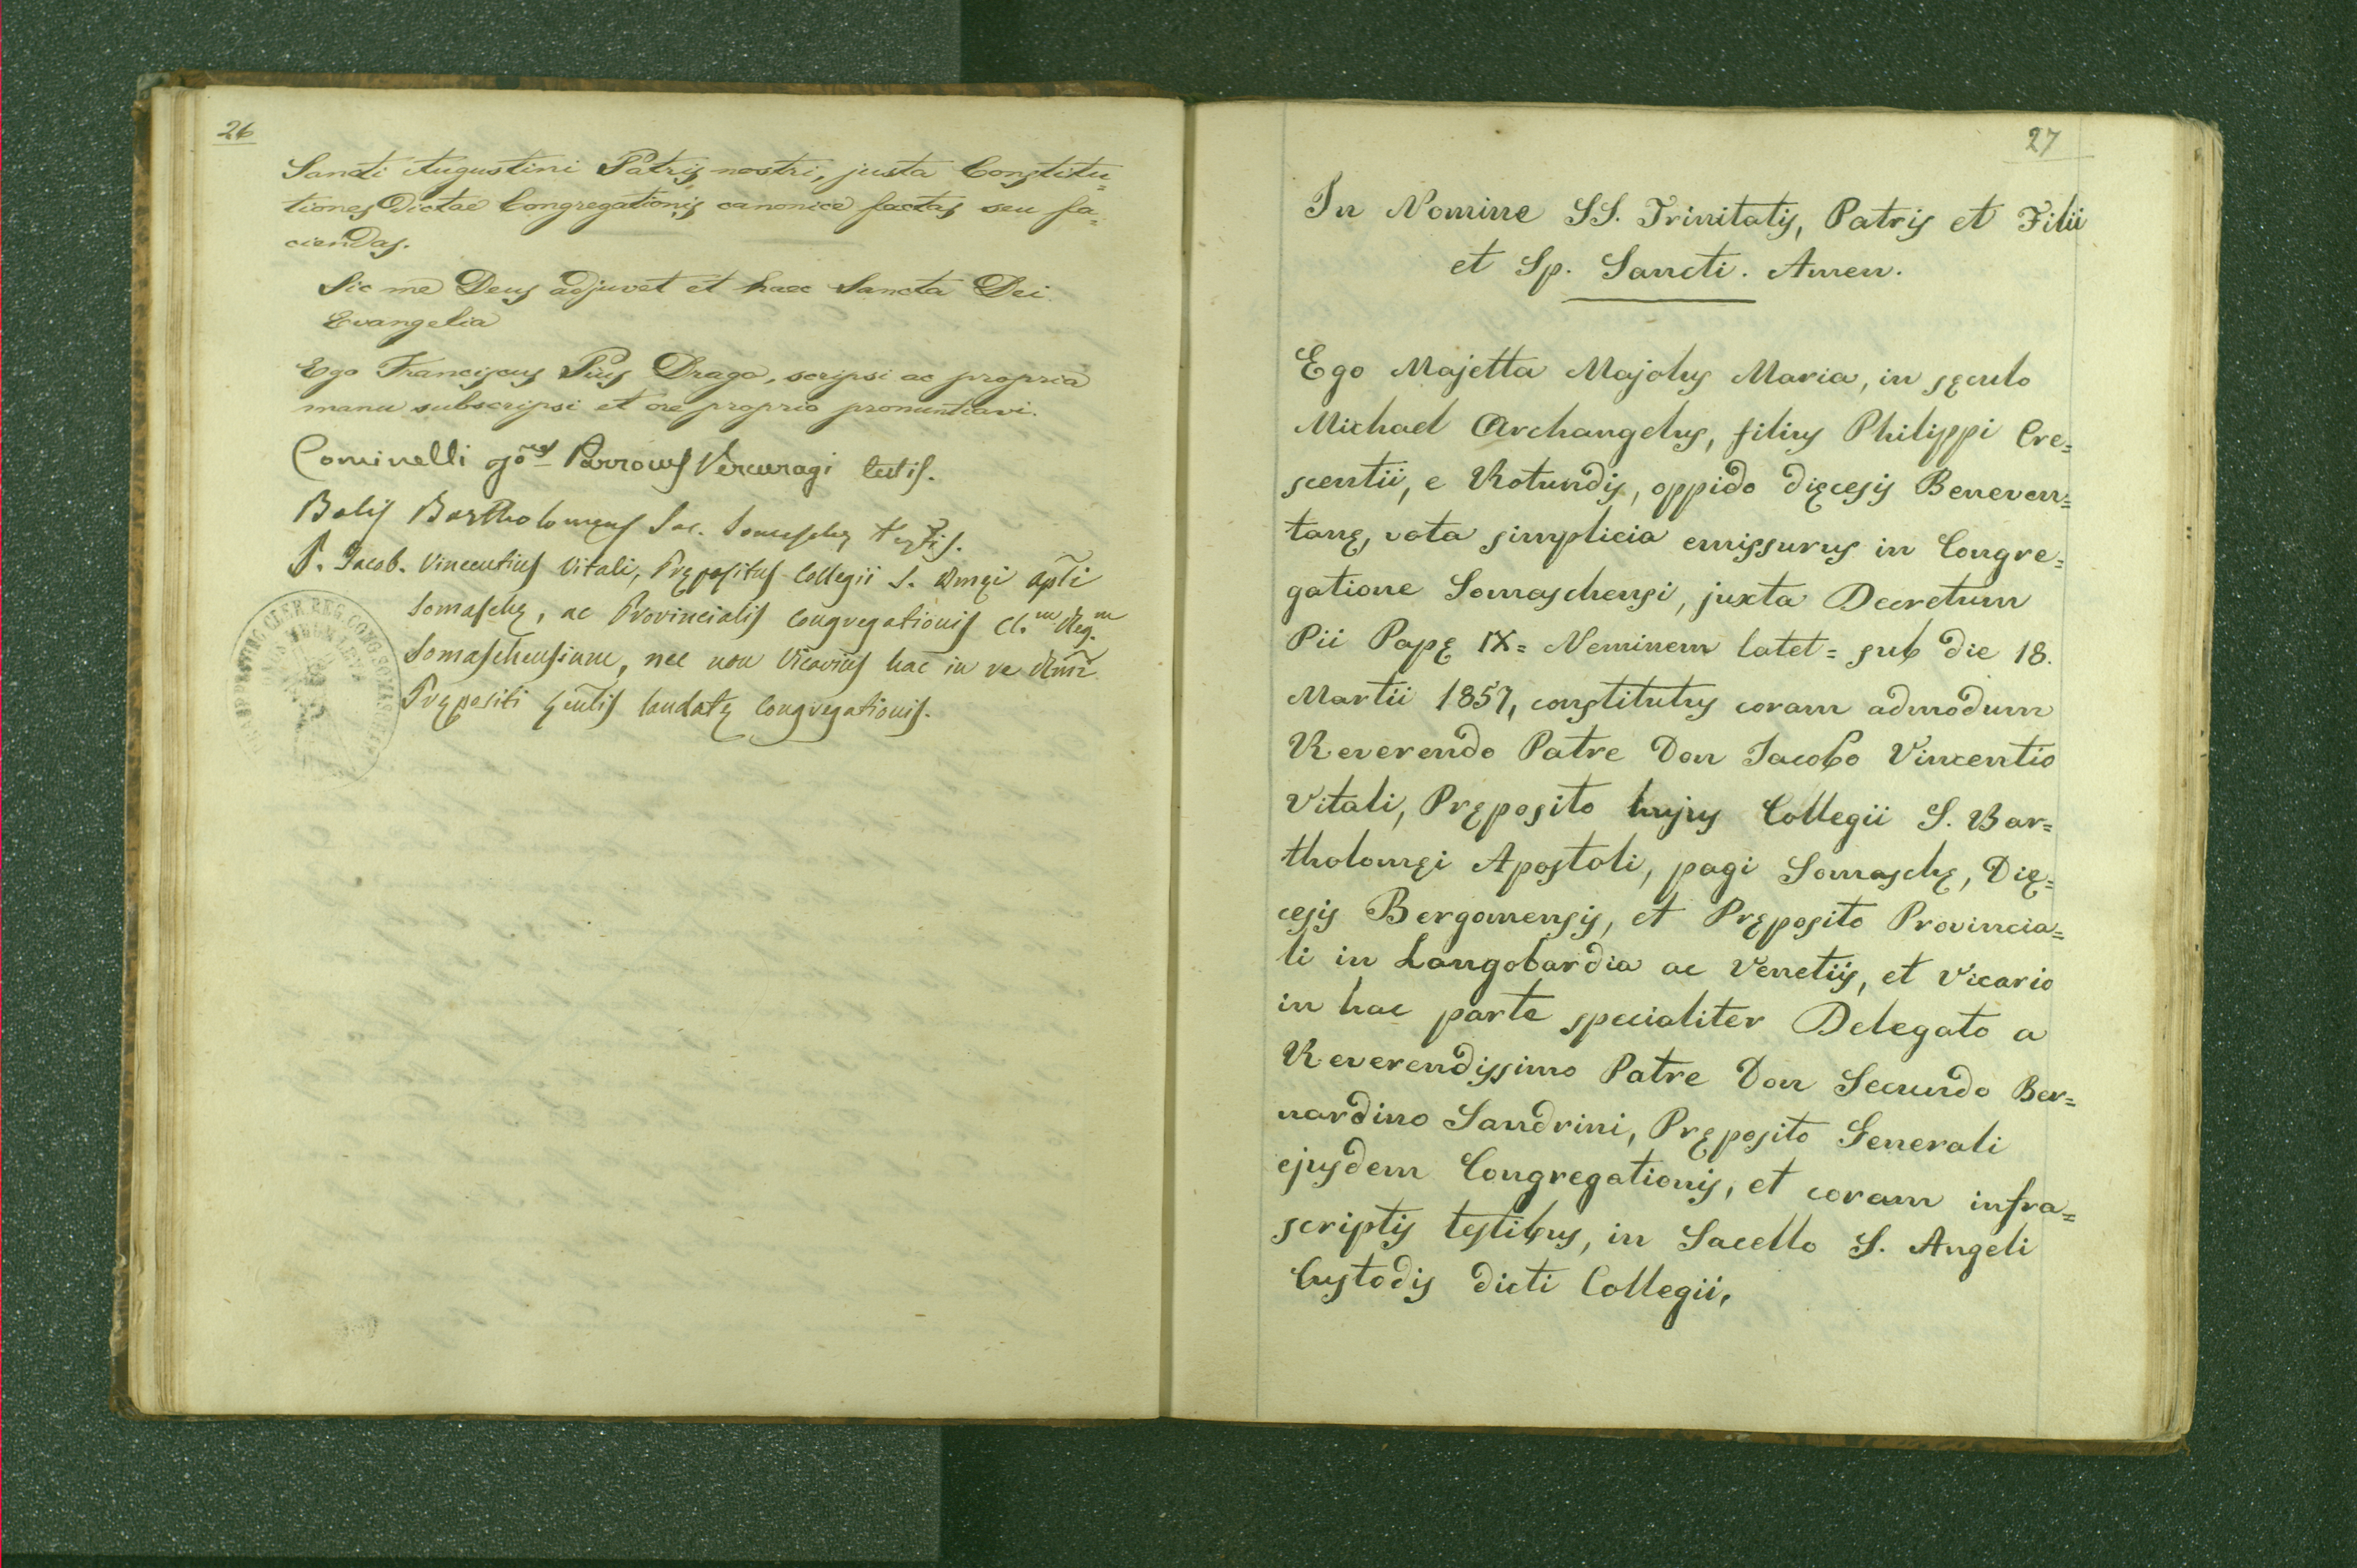 26
Sancti Augustini Patris nostri, justa Constitu=
tiones Dictae Congregationis canonice factas seu fa=
ciendas.
Sic me Deus adjuvet et haec Sancta Dei
Evangelia
Ego Franciscus Pius Draga, scripsi ac propria
manu subscripsi et ore proprio pronuntiavi.
Cominelli Parrocus Vercuragi testis.
Bolis Bartholomęus Sac. Somaschę testis.
P. Jacob. Vincentius Vitali, Prępositus Collegii S. Bmęi Apli
Somaschę, ac Provincialis Congregationis Cl.m Reg.m
Somaschensium, nec non Vicarius hac in re Rmi
Prępositi Gęnlis laudatę Congregationis.
27
In Nomine SS. Trinitatis, Patris et Filii
et Sp. Sancti. Amen.
Ego Majetta Majolus Maria, in sęculo
Michael Archangelus, filius Philippi Cre=
scentii, e Rotundis, oppido dięcesis Beneven=
tanę, vota simplicia emissurus in Congre=
gatione Somaschensi, juxta Decretum
Pii Papę IX= Neminem latet= sub die 18.
Martii 1857, constitutus coram admodum
Reverendo Patre Don Jacobo Vincentio
Vitali, Pręposito hujus Collegii S. Bar=
tholomęi Apostoli, pagi Somaschę, Dię=
cesis Bergomensis, et Pręposito Provincia=
li in Langobardia ac Venetiis, et Vicario
in hac parte specialiter Delegato a
Reverendissimo Patre Don Secundo Ber=
nardino Sandrini, Pręposito Generali
ejusdem Congregationis, et coram infra=
scriptis testibus, in Sacello S. Angeli
Custodis dicti Collegii,